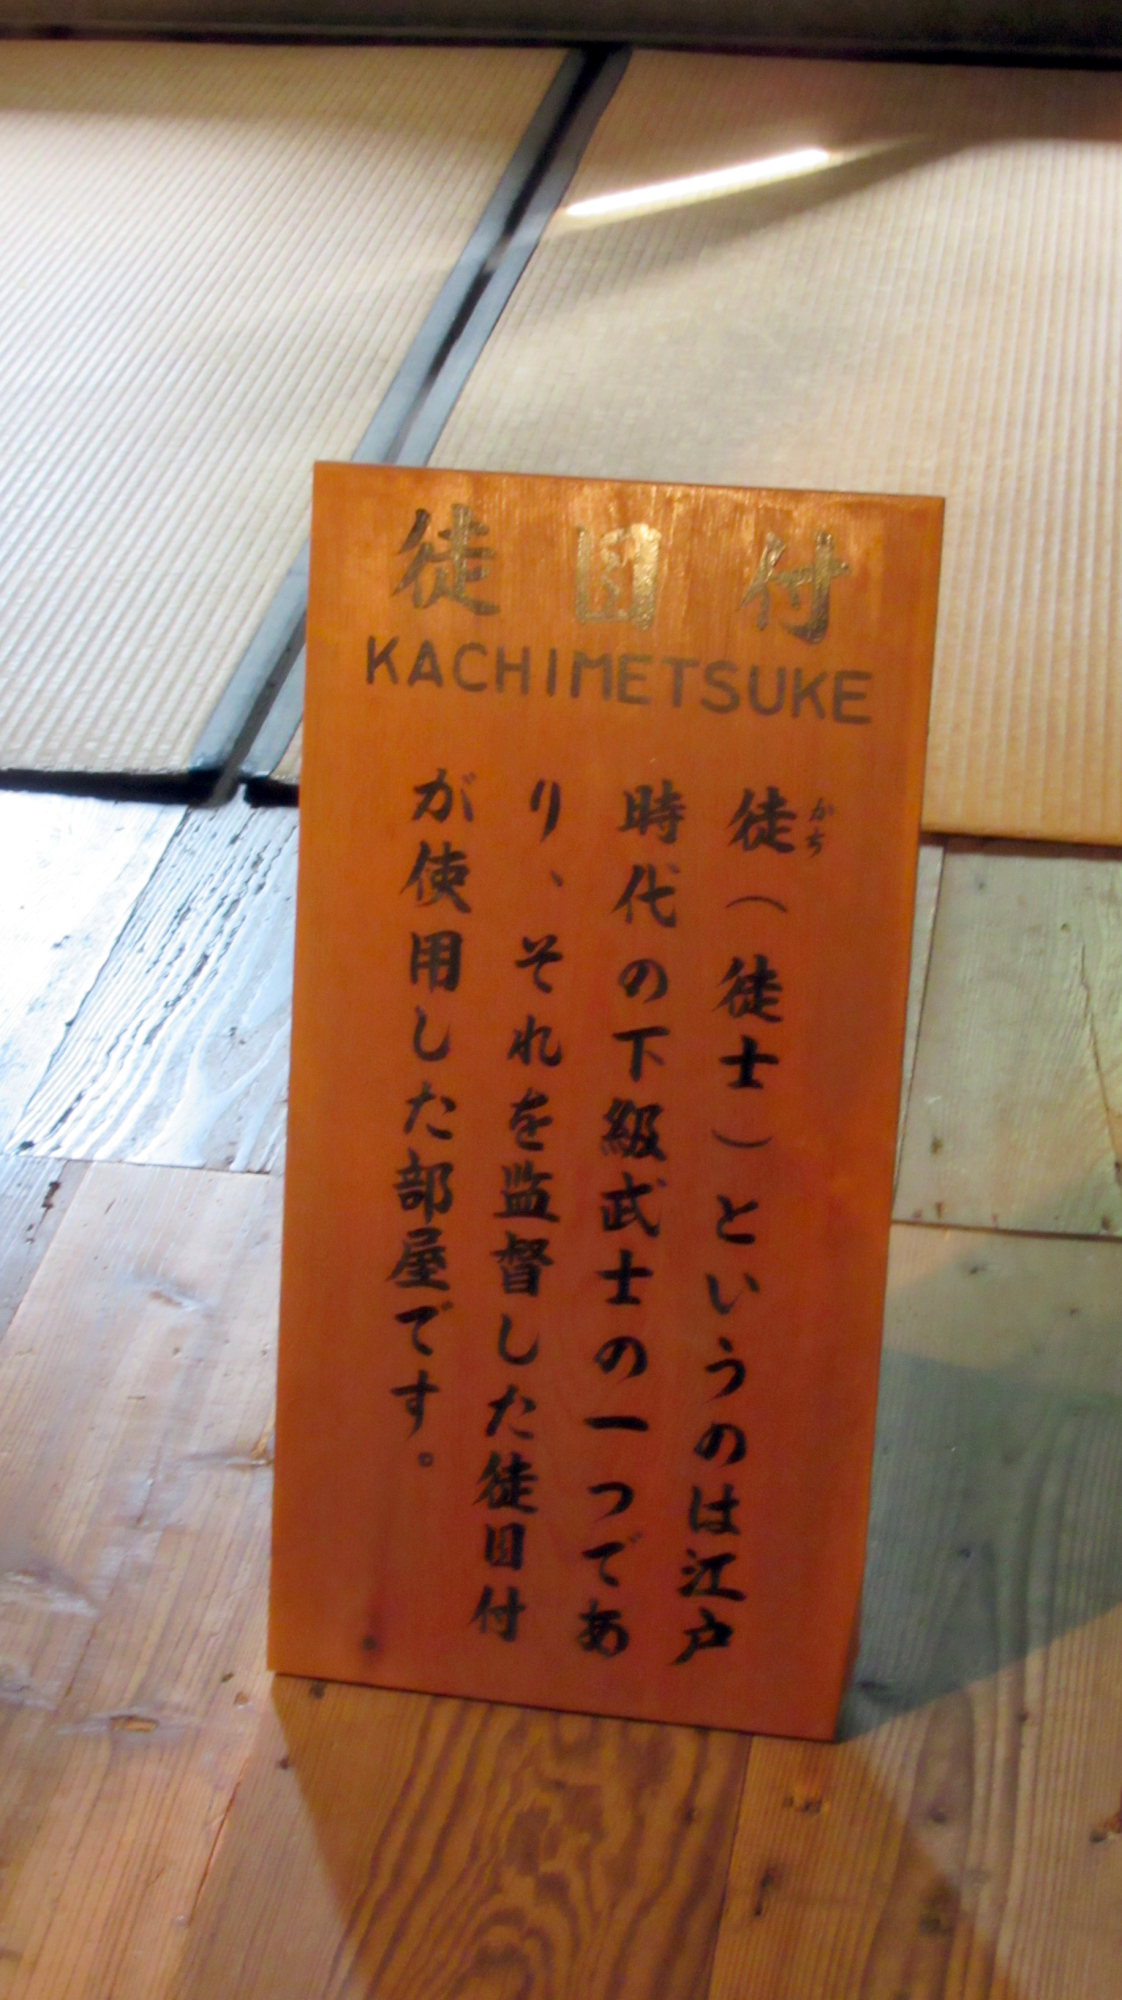 徒目付
KACHIMETSUKE
徒（徒士）というのは江戸
かち
時代の下級武士の一つであ
り、それを監督した徒目付
が使用した部屋です。